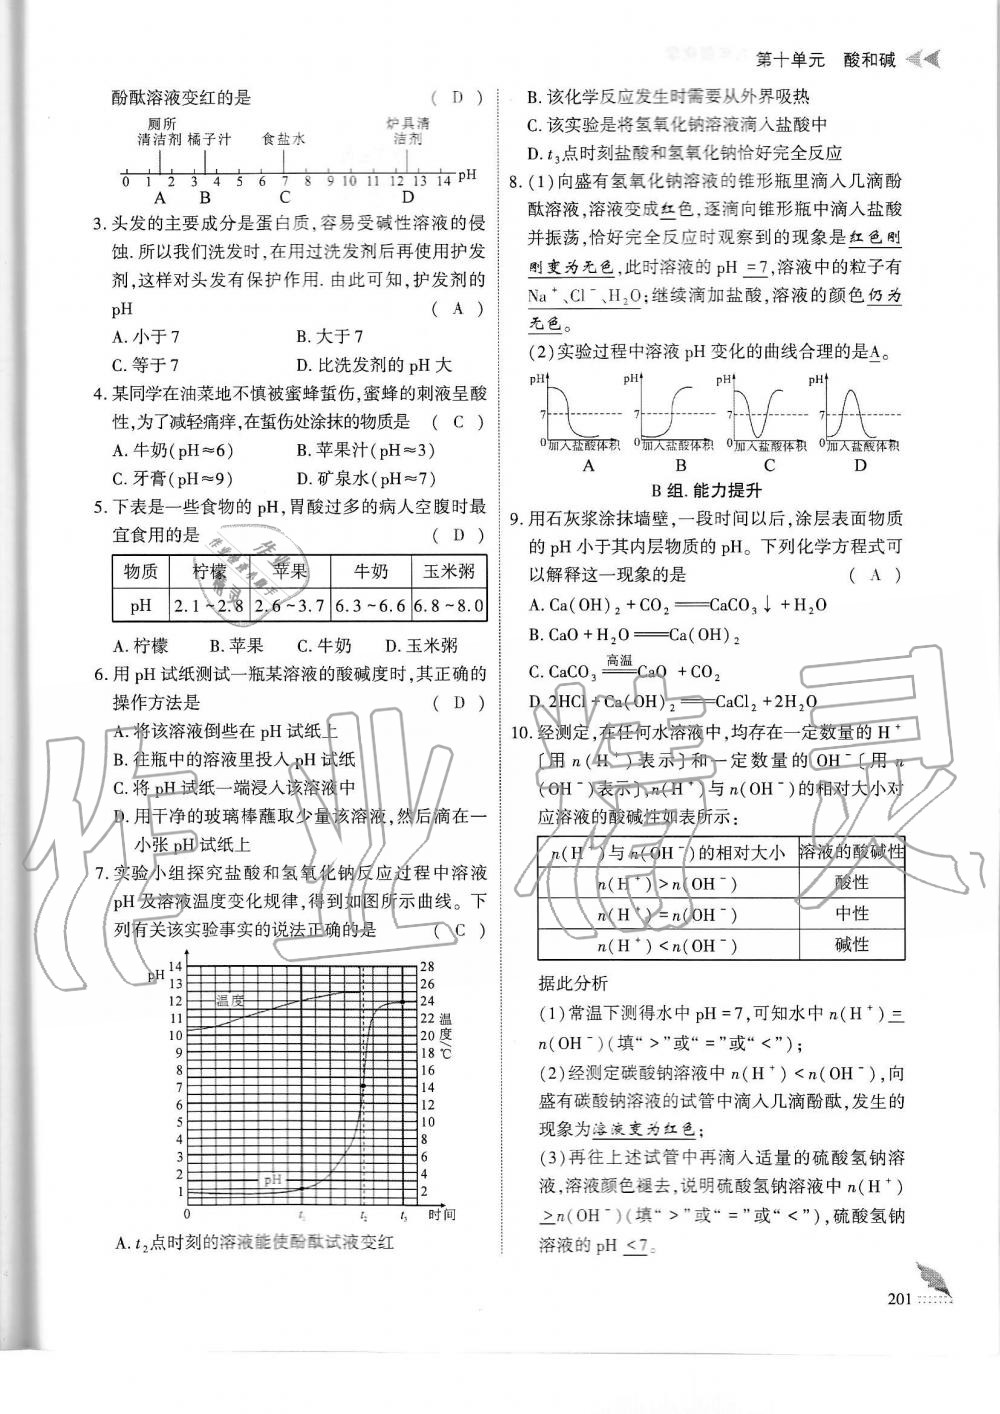 第十单元　酸和碱
酚酞溶液变红的是　( D )
厕所
清洁剂 橘子汁　食盐水　炉具清洁剂
0 1 2 3 4 5 6 7 8 9 10 11 12 13 14 pH
A B C D
3. 头发的主要成分是蛋白质,容易受碱性溶液的侵
蚀. 所以我们洗发时,在用过洗发剂后再使用护发
剂,这样对头发有保护作用. 由此可知,护发剂的
pH　( A )
A. 小于 7　B. 大于 7
C. 等于 7　D. 比洗发剂的 pH 大
4. 某同学在油菜地不慎被蜜蜂蜇伤,蜜蜂的刺液呈酸
性,为了减轻痛痒,在蜇伤处涂抹的物质是　( C )
A. 牛奶(pH≈6)　B. 苹果汁(pH≈3)
C. 牙膏(pH≈9)　D. 矿泉水(pH≈7)
5. 下表是一些食物的 pH,胃酸过多的病人空腹时最
宜食用的是　( D )
物质　柠檬　苹果　牛奶　玉米粥
pH　2.1~2.8　2.6~3.7　6.3~6.6　6.8~8.0
A. 柠檬　B. 苹果　C. 牛奶　D. 玉米粥
6. 用 pH 试纸测试一瓶某溶液的酸碱度时,其正确的
操作方法是　( D )
A. 将该溶液倒些在 pH 试纸上
B. 往瓶中的溶液里投入 pH 试纸
C. 将 pH 试纸一端浸入该溶液中
D. 用干净的玻璃棒蘸取少量该溶液,然后滴在一
小张 pH 试纸上
7. 实验小组探究盐酸和氢氧化钠反应过程中溶液
pH 及溶液温度变化规律,得到如图所示曲线。下
列有关该实验事实的说法正确的是　( C )
pH 14 13 12 11 10 9 8 7 6 5 4 3 2 1 0
温度
pH
28 26 24 22 20 18 16 14 12 10 8 6 4 2
温度/℃
t₁ t₂ t₃ 时间
A. t₂点时刻的溶液能使酚酞试液变红
B. 该化学反应发生时需要从外界吸热
C. 该实验是将氢氧化钠溶液滴入盐酸中
D. t₃点时刻盐酸和氢氧化钠恰好完全反应
8. (1)向盛有氢氧化钠溶液的锥形瓶里滴入几滴酚
酞溶液,溶液变成红色,逐滴向锥形瓶中滴入盐酸
并振荡,恰好完全反应时观察到的现象是红色刚
刚变为无色,此时溶液的 pH =7,溶液中的粒子有
Na⁺、Cl⁻、H₂O;继续滴加盐酸,溶液的颜色仍为
无色。
(2)实验过程中溶液 pH 变化的曲线合理的是A。
pH pH pH pH
7 7 7 7
0 加入盐酸体积 0 加入盐酸体积 0 加入盐酸体积 0 加入盐酸体积
A B C D
B 组. 能力提升
9. 用石灰浆涂抹墙壁,一段时间以后,涂层表面物质
的 pH 小于其内层物质的 pH。下列化学方程式可
以解释这一现象的是　( A )
A. Ca(OH)₂+CO₂══CaCO₃↓+H₂O
B. CaO+H₂O══Ca(OH)₂
高温
C. CaCO₃══CaO +CO₂
D. 2HCl+Ca(OH)₂══CaCl₂+2H₂O
10. 经测定,在任何水溶液中,均存在一定数量的 H⁺
〔用 n(H⁺)表示〕和一定数量的 OH⁻〔用 n
(OH⁻)表示〕,n(H⁺)与 n(OH⁻)的相对大小对
应溶液的酸碱性如表所示:
n(H⁺)与 n(OH⁻)的相对大小　溶液的酸碱性
n(H⁺)>n(OH⁻)　酸性
n(H⁺)=n(OH⁻)　中性
n(H⁺)<n(OH⁻)　碱性
据此分析
(1)常温下测得水中 pH=7,可知水中 n(H⁺)=
n(OH⁻)(填“>”或“=”或“<”);
(2)经测定碳酸钠溶液中 n(H⁺)<n(OH⁻),向
盛有碳酸钠溶液的试管中滴入几滴酚酞,发生的
现象为溶液变为红色;
(3)再往上述试管中再滴入适量的硫酸氢钠溶
液,溶液颜色褪去,说明硫酸氢钠溶液中 n(H⁺)
>n(OH⁻)(填“>”或“=”或“<”),硫酸氢钠
溶液的 pH <7。
201
作业精灵